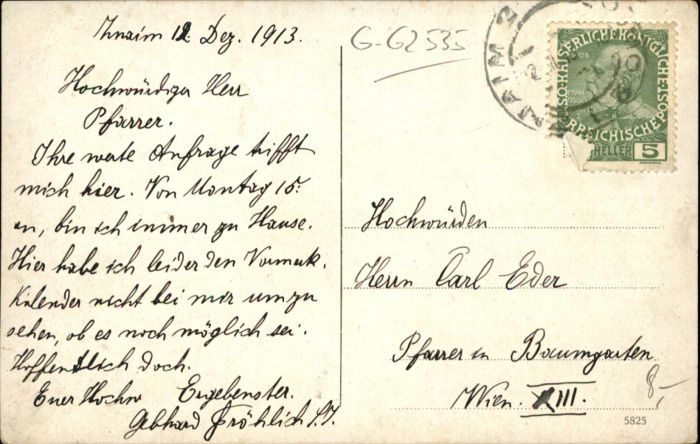 Znaim 12 Dez. 1913.
Hochwürdiger Herr
Pfarrer.
Ihre werte Anfrage trifft
mich hier. Von Montag 15.
an, bin ich immer zu Hause.
Hier habe ich leider den Vormerk-
Kalender nicht bei mir um zu
sehen, ob es noch möglich sei.
Hoffentlich doch.
Euer Hochw Ergebenster.
Gebhard Fröhlich S.J.
G-G2535
ZNAIM 2
KAISERLICHE KÖNIGLICHE
ÖSTERREICHISCHE POST
HELLER 5
Hochwürden
Herrn Carl Eder
Pfarrer in Baumgarten
Wien. XIII.
8,-
5825